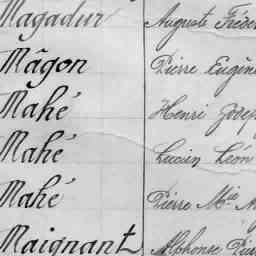 Magadur Auguste Fréde
Mâgon Pierre Eugèn
Mahé Henri Josep
Mahé Lucien Léon
Mahé Pierre Mie
Maignant Alphonse Pier